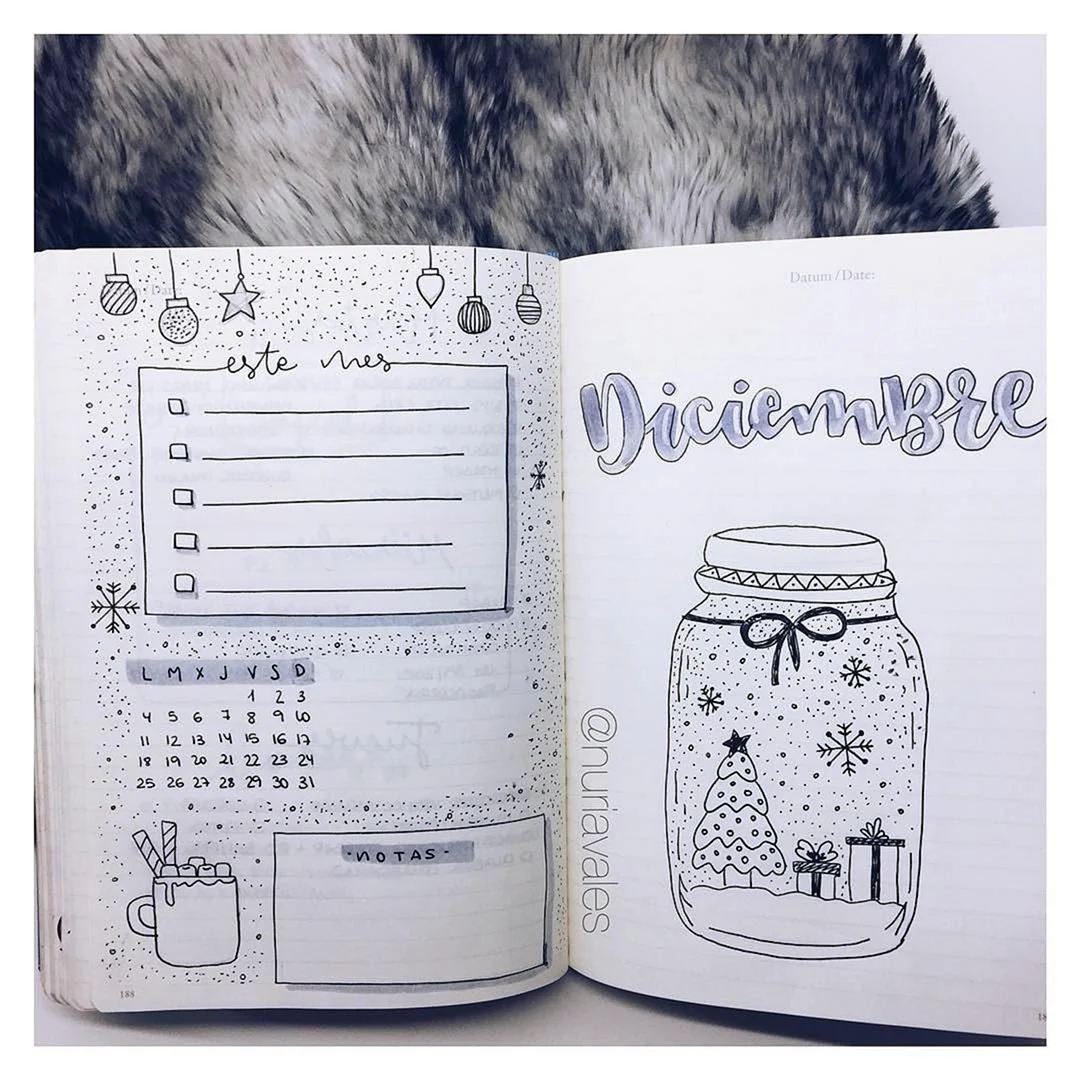 este mes
L M X J V S D
1 2 3
4 5 6 7 8 9 10
11 12 13 14 15 16 17
18 19 20 21 22 23 24
25 26 27 28 29 30 31
·NOTAS·
188
Datum/Date:
DiciemBre
@nuriavales